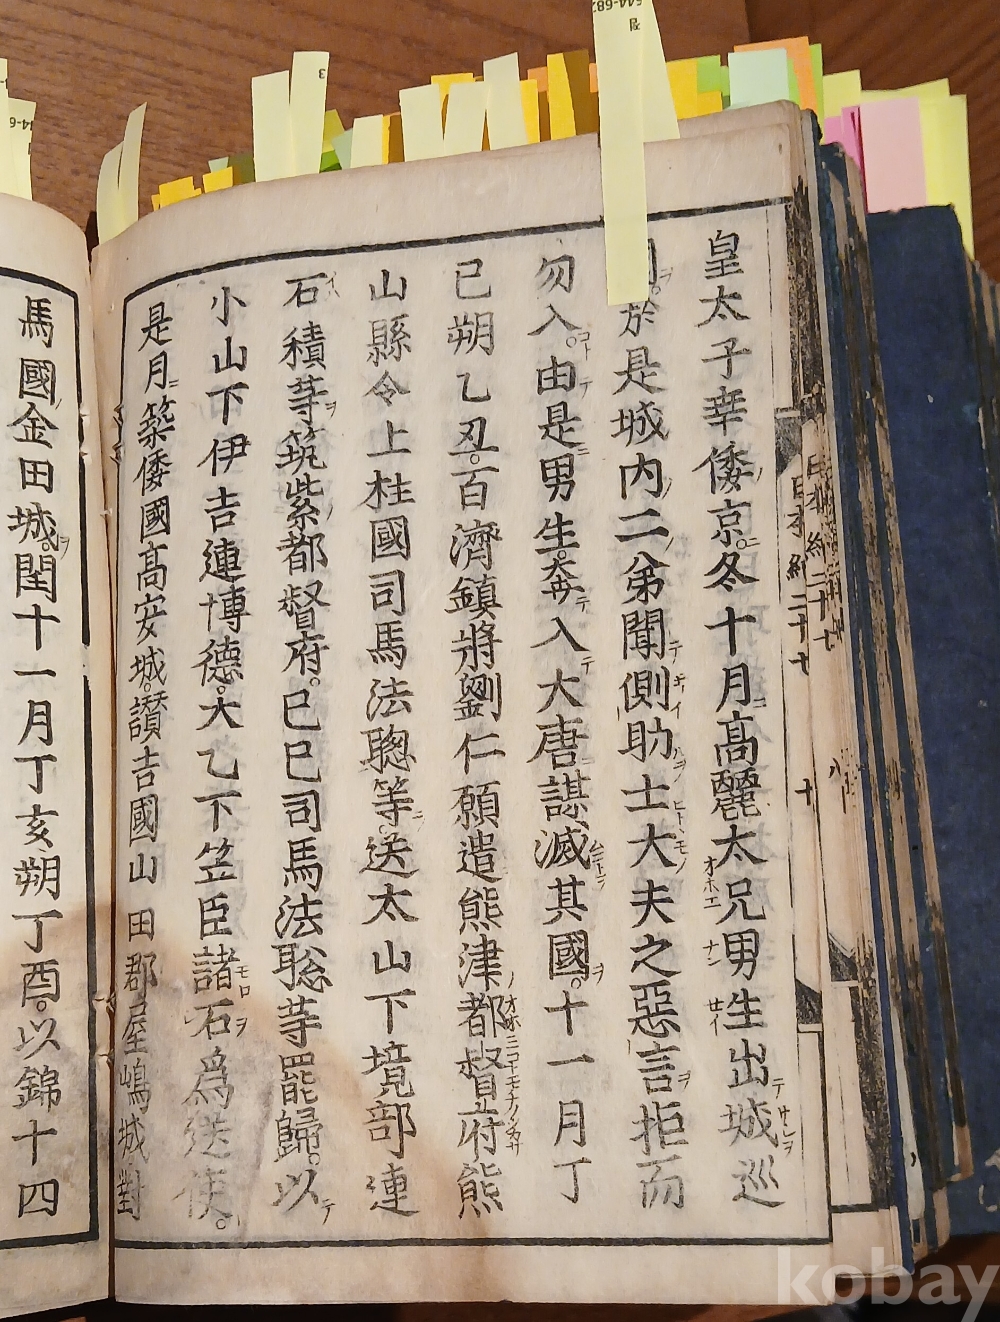 皇太子幸倭京。冬十月高麗太兄男生出城巡
於是城内二弟聞側助士大夫之惡言拒而
勿入。由是男生。奔入大唐謀滅其國。十一月丁
巳朔乙丑。百濟鎮將劉仁願遣熊津都督府熊
山縣令上柱國司馬法聰等。送太山下境部連
石積等筑紫都督府。己巳司馬法聡等罷歸。以
小山下伊吉連博德。大乙下笠臣諸石爲送使。
是月築倭國高安城。讃吉國山田郡屋嶋城對
馬國金田城。閏十一月丁亥朔丁酉。以錦十四
日本紀二十七
十
日本紀二十七
kobay